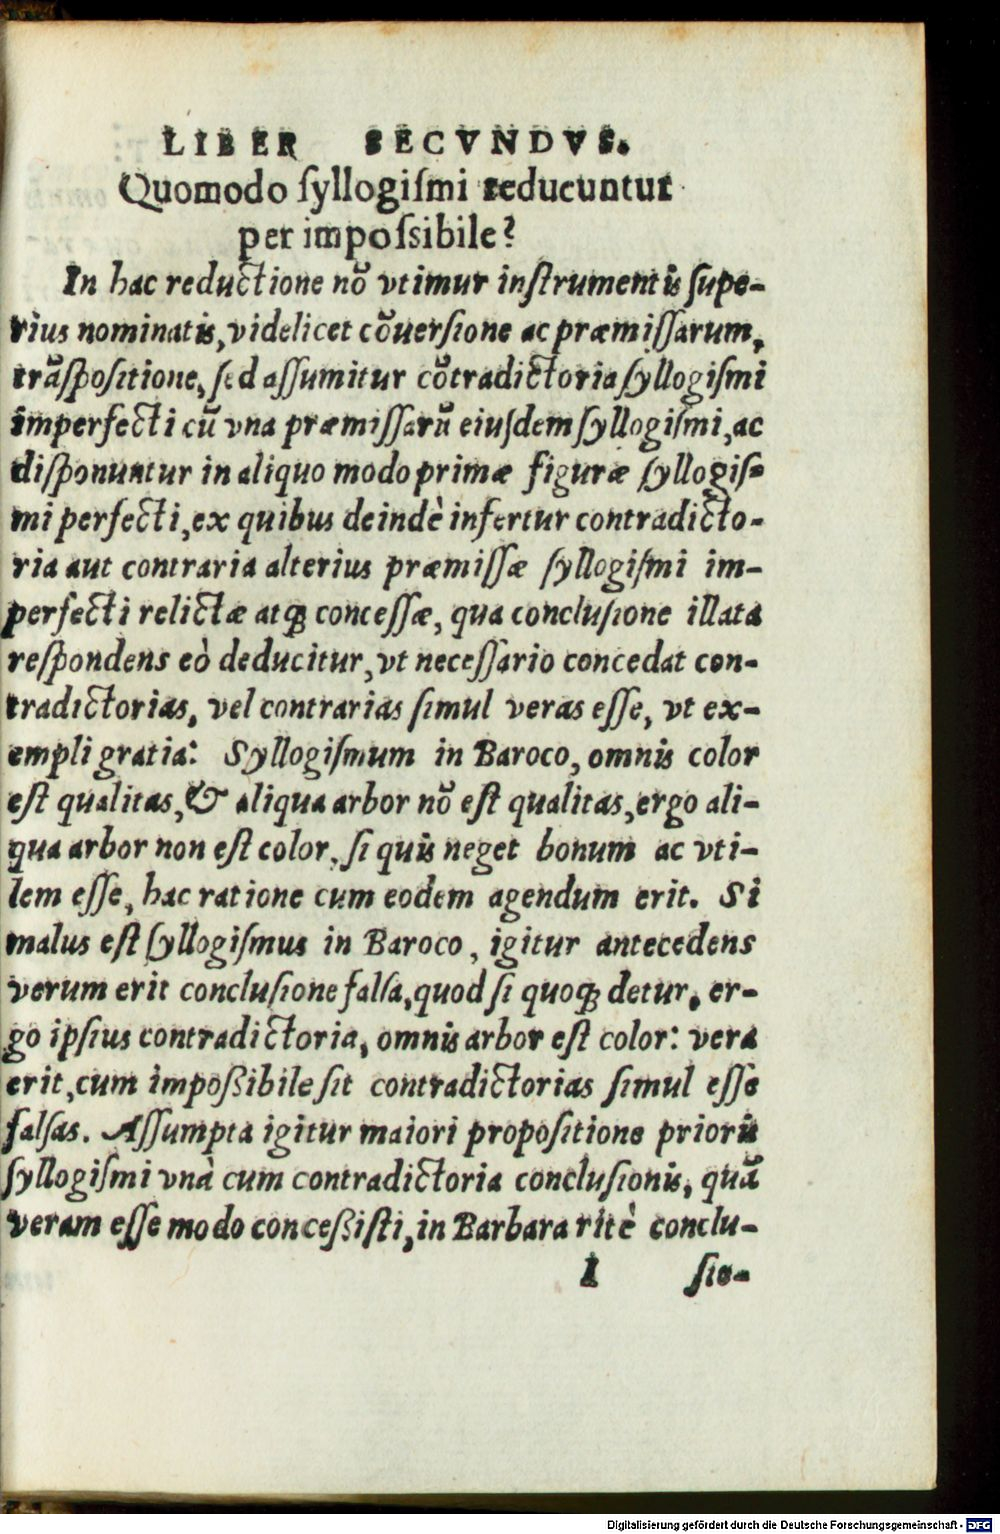 LIBER SECVNDVS.
Quomodo ſyllogiſmi reducuntur
per impoſsibile?
In hac reductione nõ vtimur inſtrumentis ſupe-
rius nominatis, videlicet cõuerſione ac præmiſſarum,
trãſpoſitione, ſed aſſumitur cõtradictoria ſyllogiſmi
imperfecti cũ vna præmiſſarũ eiuſdem ſyllogiſmi, ac
diſponuntur in aliquo modo primæ figuræ ſyllogiſ-
mi perfecti, ex quibus deindè infertur contradicto-
ria aut contraria alterius præmiſſæ ſyllogiſmi im-
perfecti relictæ atq; conceſſæ, qua concluſione illata
reſpondens eò deducitur, vt neceſſario concedat con-
tradictorias, vel contrarias ſimul veras eſſe, vt ex-
empli gratia: Syllogiſmum in Baroco, omnis color
eſt qualitas, & aliqua arbor nõ eſt qualitas, ergo ali-
qua arbor non eſt color, ſi quis neget bonum ac vti-
lem eſſe, hac ratione cum eodem agendum erit. Si
malus eſt ſyllogiſmus in Baroco, igitur antecedens
verum erit concluſione falſa, quod ſi quoq; detur, er-
go ipſius contradictoria, omnis arbor eſt color: vera
erit, cum impoßibile ſit contradictorias ſimul eſſe
falſas. Aſſumpta igitur maiori propoſitione prioris
ſyllogiſmi vnà cum contradictoria concluſionis, quã
veram eſſe modo conceßiſti, in Barbara ritè conclu-
I ſio-
Digitalisierung gefördert durch die Deutsche Forschungsgemeinschaft - DFG